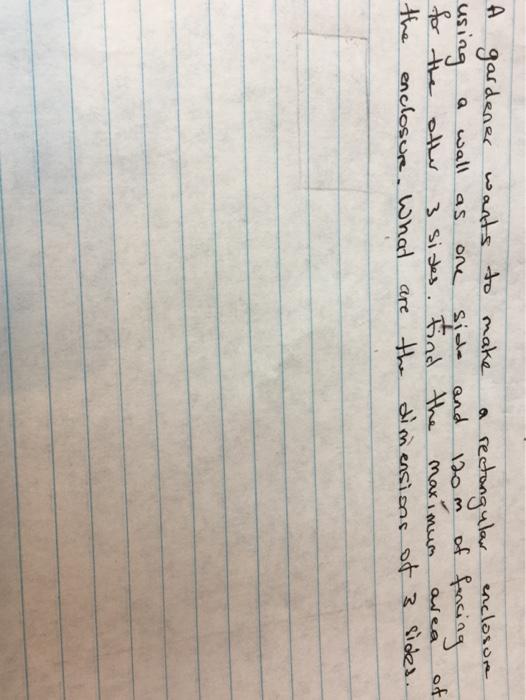 A gardener wants to make a rectangular enclosure
using a wall as one side and 120 m of fencing
for the other 3 sides. Find the maximum area of
the enclosure. What are the dimensions of 3 sides.